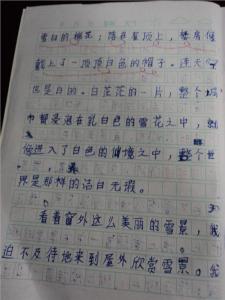 雪白的棉花；落在屋顶上，给房子
戴上了一顶顶白色的帽子。连天
也是白的。白茫茫的一片，整个城
市都浸泡在乳白色的雪花之中，
进入了白色的仙境之中，整个世
界是那样的洁白无瑕。
看着窗外这么美丽的雪景，我
迫不及待地来到屋外欣赏雪景。我